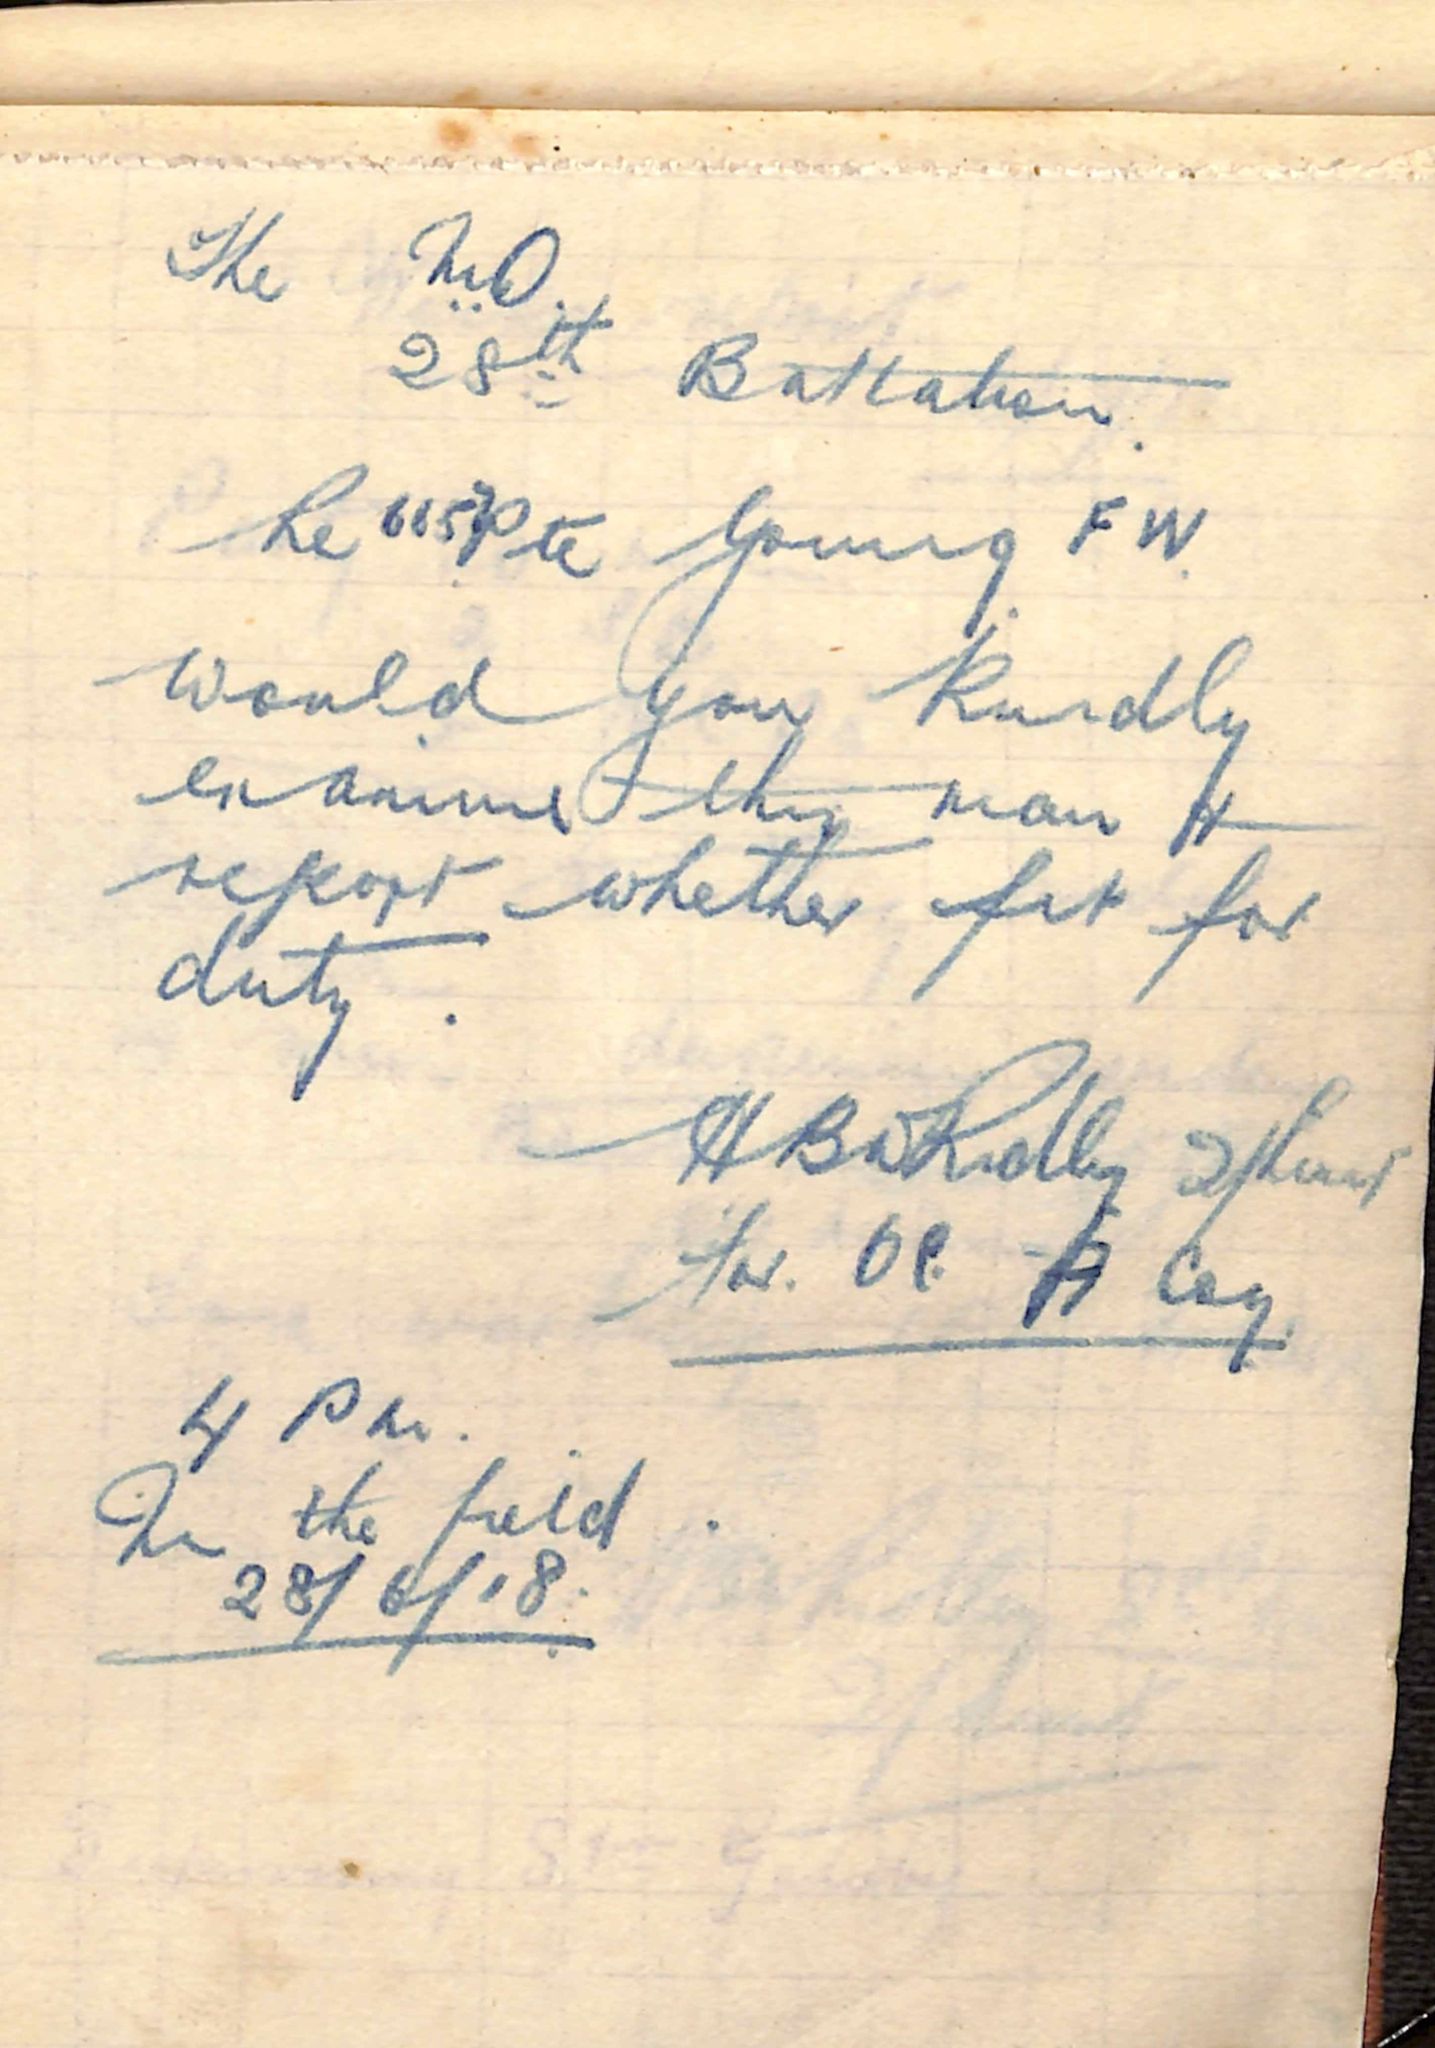 The M.O.
28th Battalion.
Re Pte Young F W.
Would you kindly
examine this man &
report whether fit for
duty.
H B W Ridley 2/Lieut
for. OC. A Coy
4 Pm.
In the field.
28/6/18.